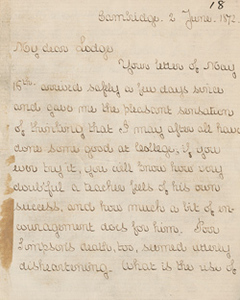 18
Cambridge. 2 June. 1872.
My dear Lodge
Your letter of May
16th arrived safely a few days since
and gave me the pleasant sensation
of thinking that I may after all have
done some good at College. If you
ever try it, you will know how very
doubtful a teacher feels of his own
success, and how much a bit of en-
couragement does for him. Poor
Simpson's death, too, seemed utterly
disheartening. What is the use of